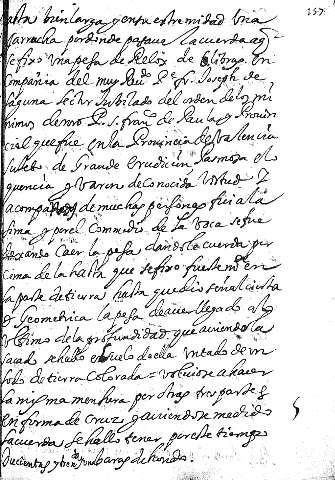 asta bien larga y en su extremidad Vna
garrucha por donde pasaue la cuerda aq.
se fixo Vna pesa de Relox de 6 libras. En
Compañia del muy Reu.do P.e fr. Joseph de
laguna lector Jubilado del orden de los mi
nimos de nro P. S. fran.co de Paula y Provin
cial que fue en la Prouincia de Valencia
sujeto de Grande erudicion Pasmosa elo
quencia y Varon de Conocida Virtud, Y
acompañado de muchas personas fui a la
sima y por el Commedio de la boca se fue
dexando Caer la pesa dando la cuerda por
cima de la hasta que se fixo fuertem.te en
la parte de tierra hasta que dio señal cierta
y Geometrica la pesa de auer llegado a lo
Vltimo de la profundidad, que auiendola
sacado se hallo el suelo de ella Vntado de Vn
lodo de tierra Colorada = boluiose a hacer
la misma mensura por otras tres partes
en forma de Cruz, y auiendose medido
la cuerda se hallo tener por este tiempo
Ducientas y Varas de hondo.